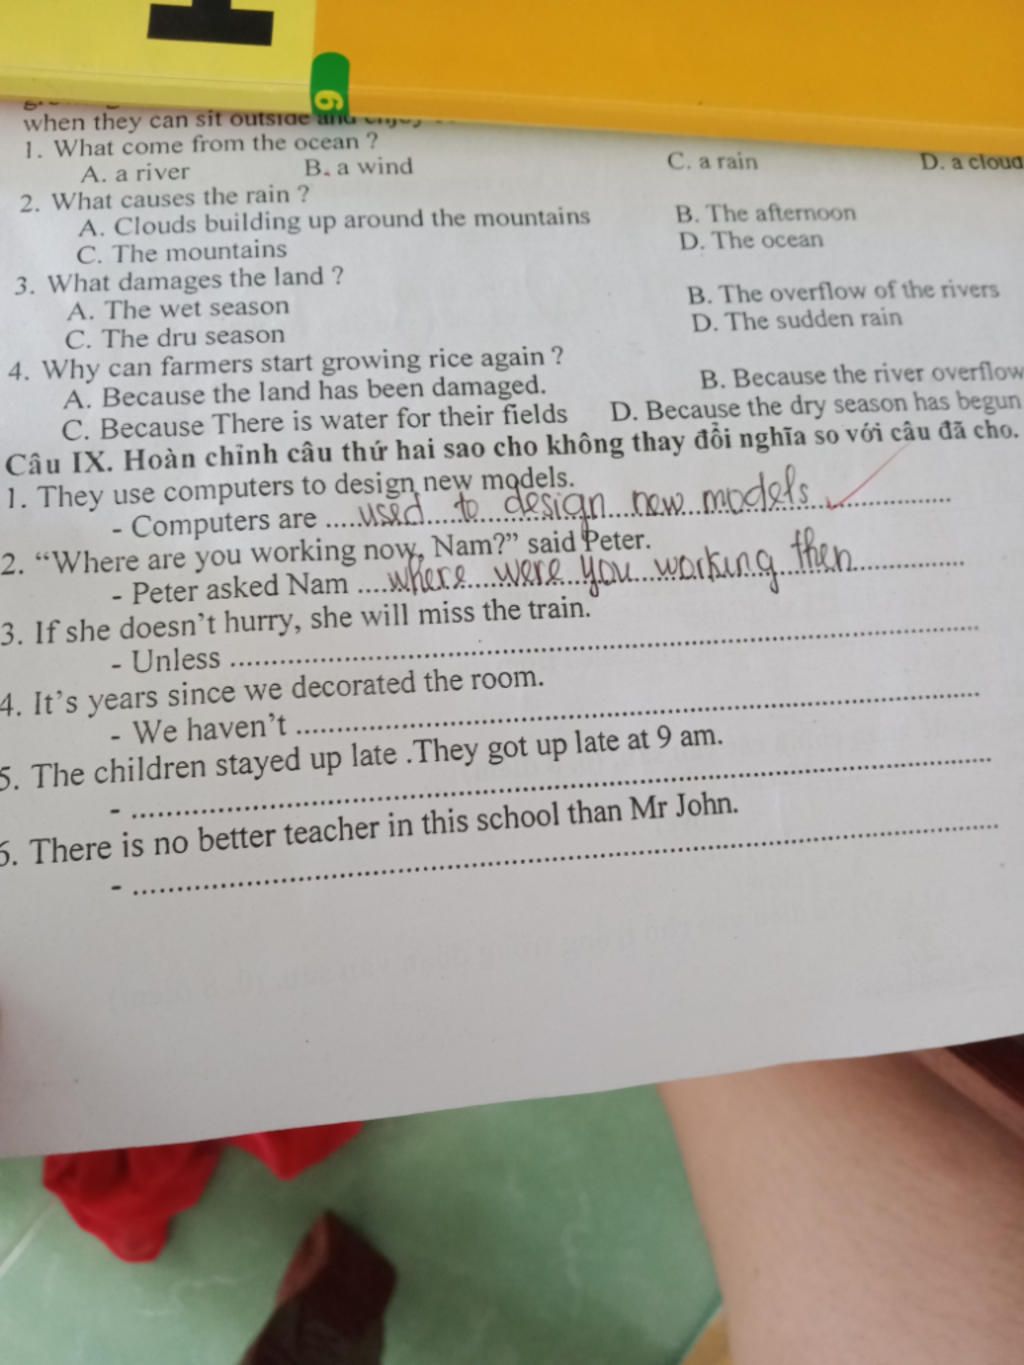 6
when they can sit outside and enjoy
1. What come from the ocean ?
A. a river B. a wind C. a rain D. a cloud
2. What causes the rain ?
A. Clouds building up around the mountains B. The afternoon
C. The mountains D. The ocean
3. What damages the land ?
A. The wet season B. The overflow of the rivers
C. The dru season D. The sudden rain
4. Why can farmers start growing rice again ?
A. Because the land has been damaged. B. Because the river overflow
C. Because There is water for their fields D. Because the dry season has begun
Câu IX. Hoàn chỉnh câu thứ hai sao cho không thay đổi nghĩa so với câu đã cho.
1. They use computers to design new models.
- Computers are ....used to design new models
2. “Where are you working now, Nam?” said Peter.
- Peter asked Nam ....where were you working then
3. If she doesn’t hurry, she will miss the train.
- Unless ....
4. It’s years since we decorated the room.
- We haven’t ....
5. The children stayed up late .They got up late at 9 am.
- ....
6. There is no better teacher in this school than Mr John.
- ....